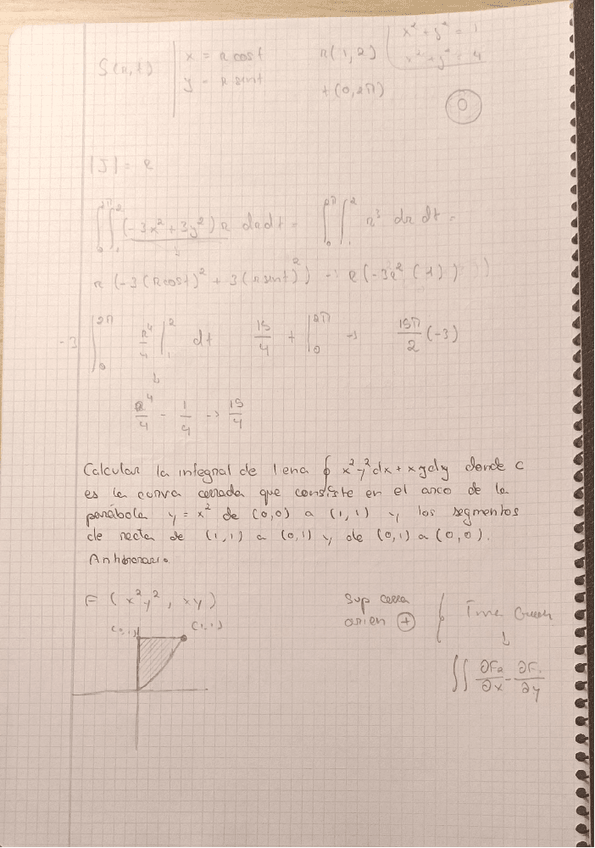 S(r,t) | x = r cost r(1,2) x² + y² = 1
y = r sint t(0,2π) x² + y² = 4
|J| = r
∫₀^2π ∫₁^2 (-3x² + 3y²) r drdt = ∫₀^2π ∫₁^2 r³ dr dt =
r (-3(rcost)² + 3(rsint)²) → r(-3r² (1))
-3 ∫₀^2π r⁴/4 |₁^2 dt 15/4 t |₀^2π → 15π/2 (-3)
2⁴/4 - 1/4 → 15/4
Calcular la integral de linea ∮ x²y²dx + xydy donde c
es la curva cerrada que consiste en el arco de la
parábola y = x² de (0,0) a (1,1) y los segmentos
de recta de (1,1) a (0,1) y de (0,1) a (0,0).
Antihorario.
F (x²y², xy)
Sup cerra
orien +
Tma Green
(0,1) (1,1)
∫∫ ∂F₂/∂x - ∂F₁/∂y